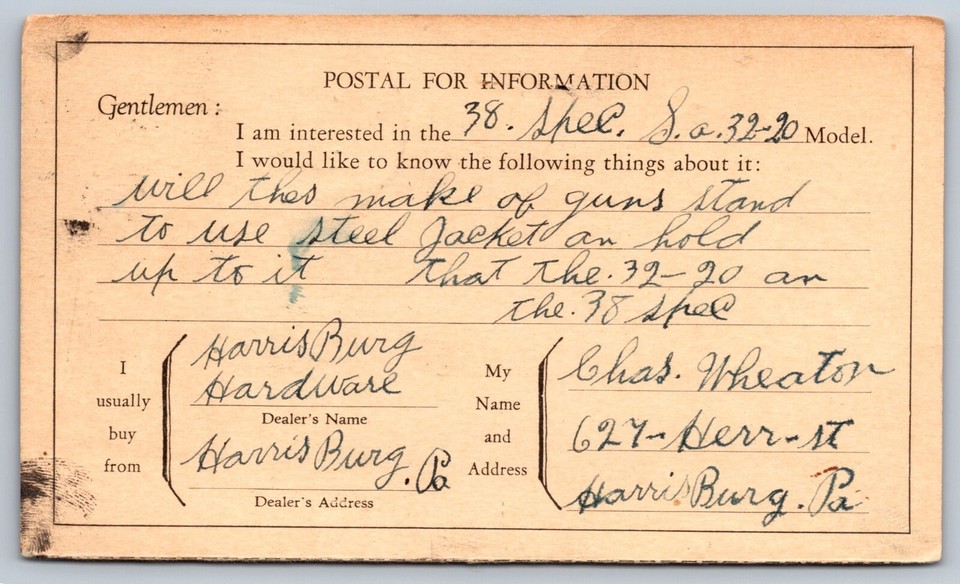 POSTAL FOR INFORMATION
Gentlemen:
I am interested in the 38. Spec. S.a. 32-20 Model.
I would like to know the following things about it:
will thes make of guns stand
to use steel Jacket an hold
up to it that the .32-20 an
the .38 spec
I usually buy from
HarrisBurg
Hardware
Dealer's Name
HarrisBurg. Pa
Dealer's Address
My Name and Address
Chas. Wheaton
627- Herr-st
HarrisBurg. Pa